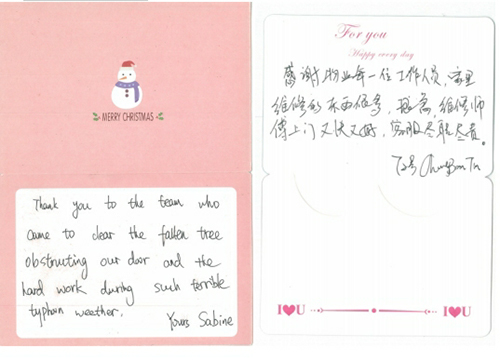 MERRY CHRISTMAS
Thank you to the team who
came to clear the fallen tree
obstructing our door and the
hard work during such terrible
typhoon weather.
Yours Sabine
For you
Happy every day
感谢物业每一位工作人员,家里
维修的东西很多,
维修师
傅上门又快又好,客服尽职尽责。
I♥U
I♥U